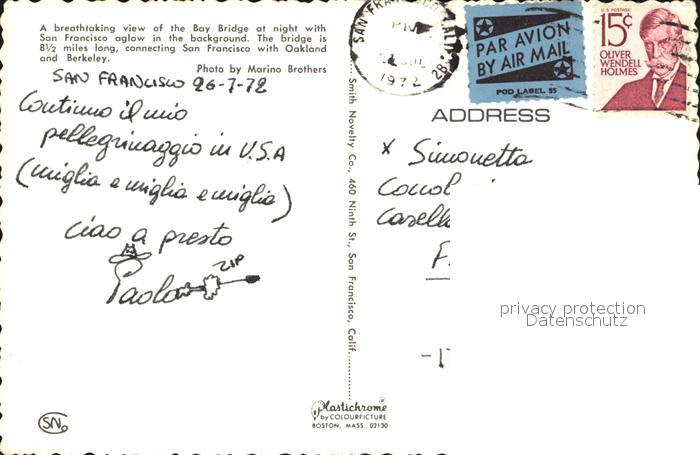 A breathtaking view of the Bay Bridge at night with
San Francisco aglow in the background. The bridge is
8½ miles long, connecting San Francisco with Oakland
and Berkeley.
Photo by Marino Brothers
SAN FRANCISCO 26-7-72
Continuo il mio
pellegrinaggio in U.S.A
(miglia e miglia e miglia)
ciao a presto
Paola
ZIP
SN
Smith Novelty Co., 460 Ninth St., San Francisco, Calif.
Plastichrome
by COLOURPICTURE
BOSTON, MASS. 02130
SAN FRANCISCO, CALIF.
PM
1972
28
PAR AVION
BY AIR MAIL
POD LABEL 55
U.S. POSTAGE
15¢
OLIVER
WENDELL
HOLMES
ADDRESS
x Simonetta
privacy protection
Datenschutz